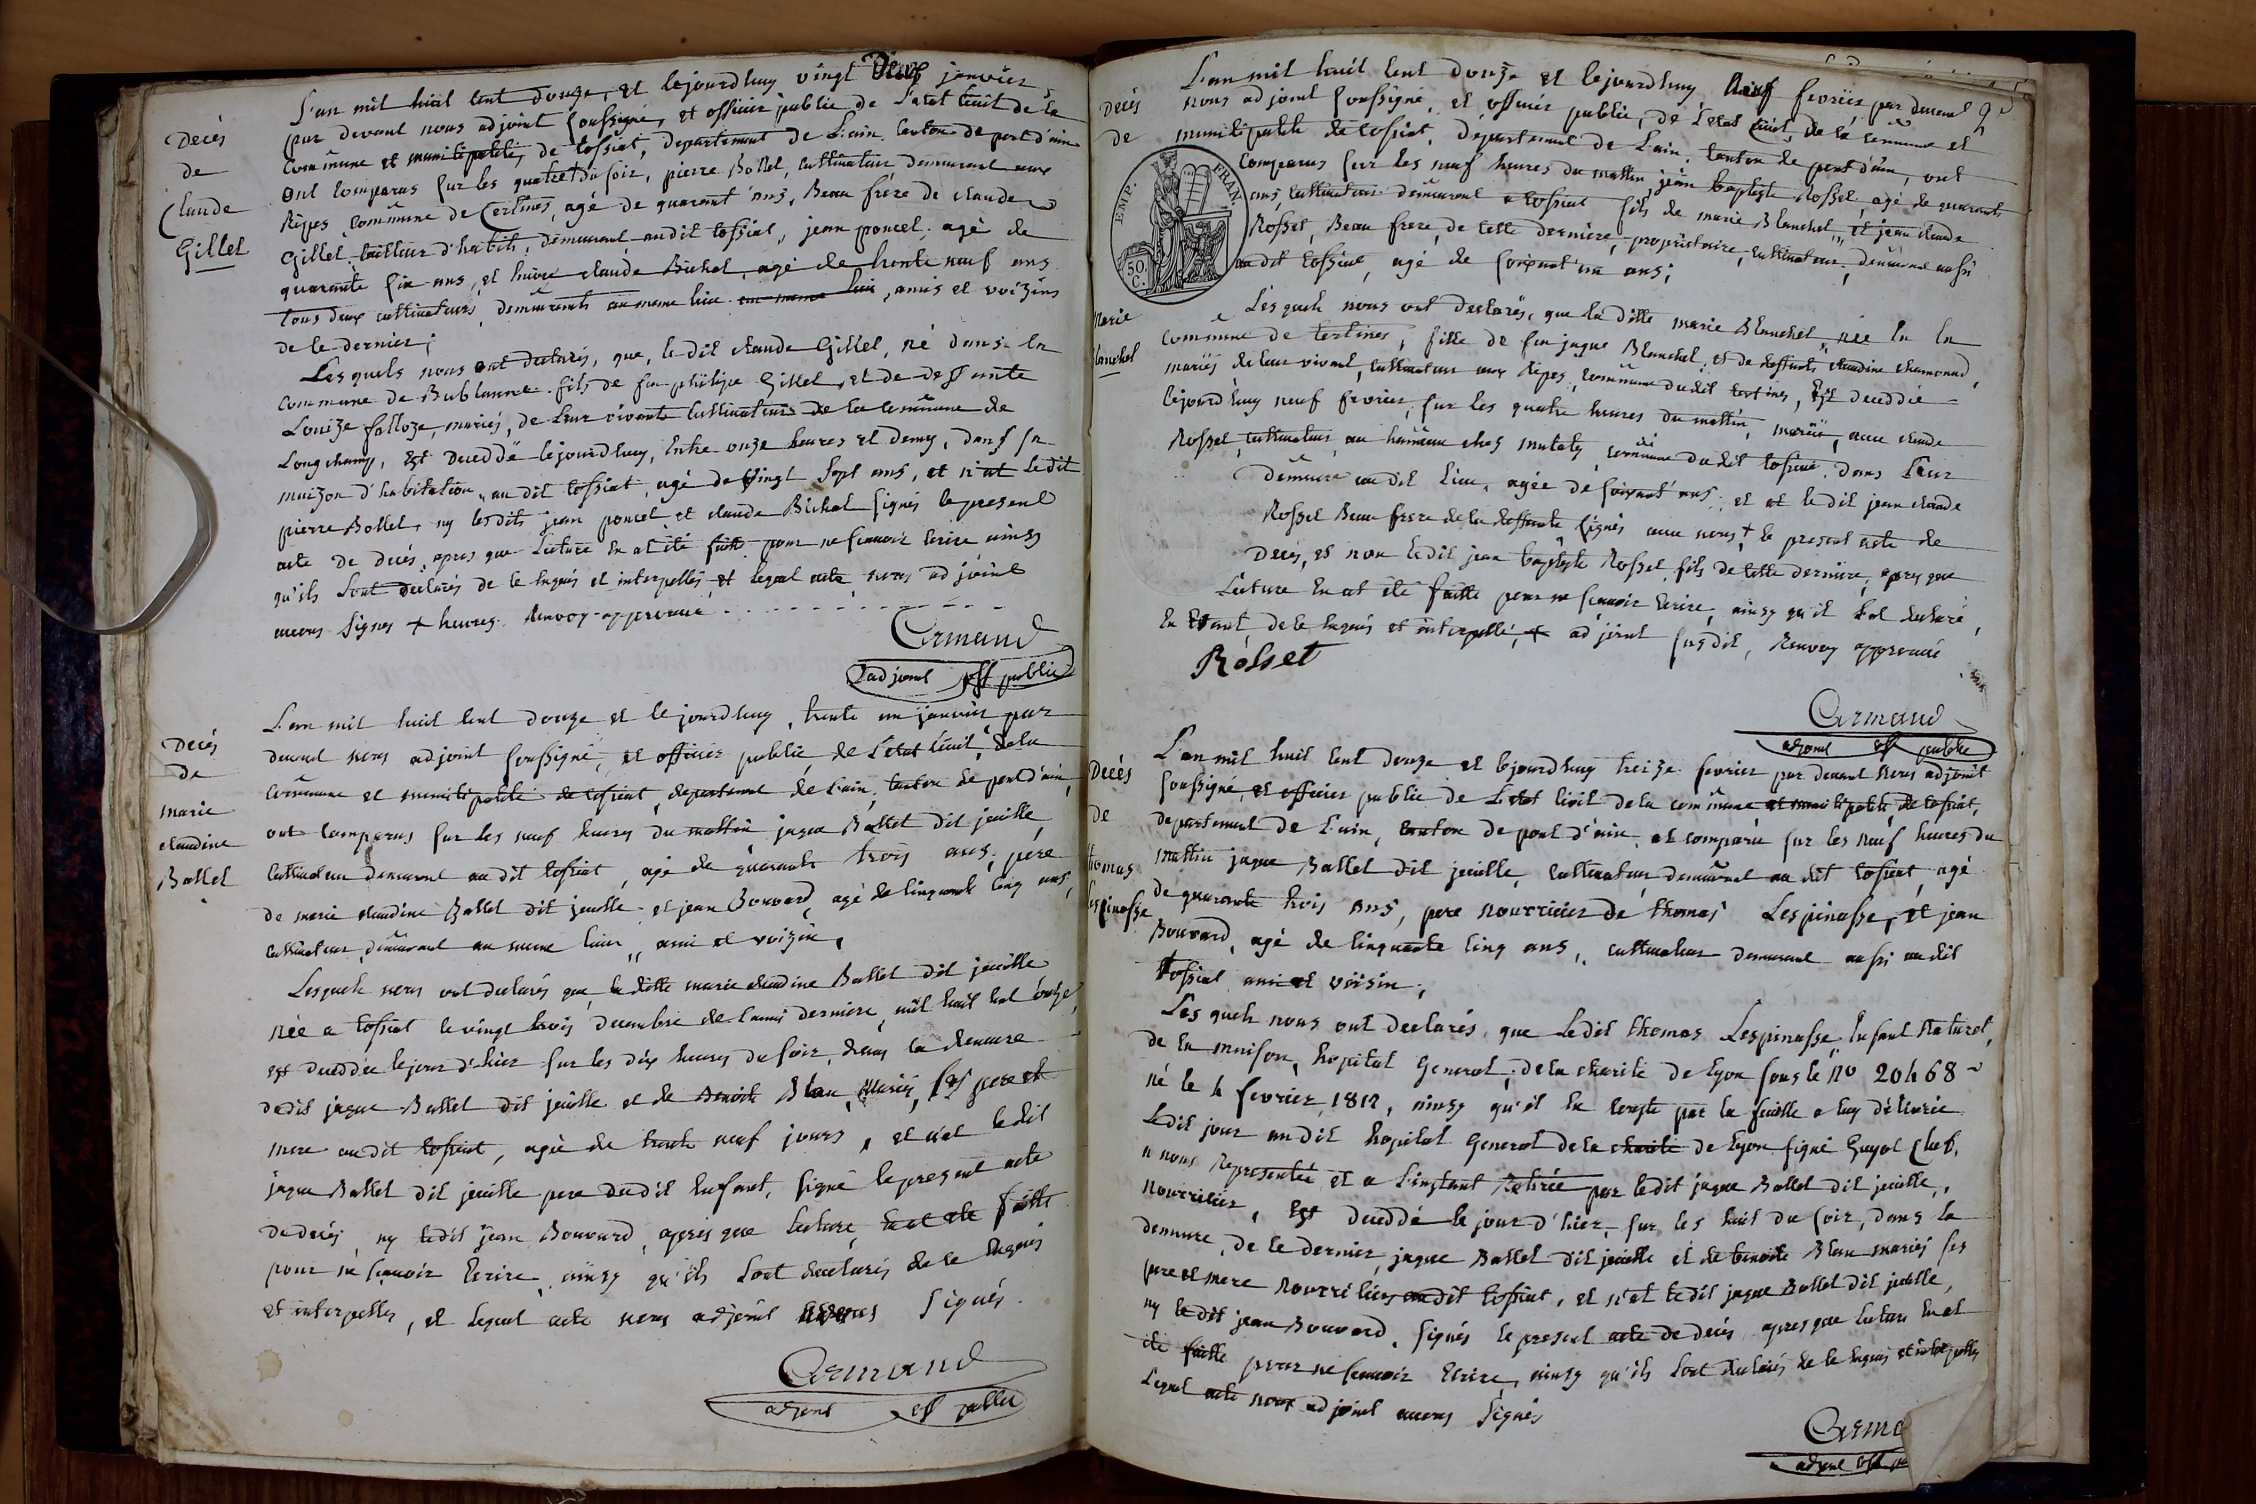 Decès
de
Claude
Gillet
L'an mil huit cent douze, et lejourdhuy vingt Deux janvier
par devant nous adjoint soussigné, et officier public de L'etat Civil de la
Commune et municipalité, de tossiat, departement de L'ain canton de pont d'ain
ont comparus sur les quatre + du soir, pierre Bollet, cultivateur demeurant aux
Ripes, commune de Certines, agé de quarant ans, Beau frère de claude
Gillet tailleur d'habits, demeurant audit tossiat, jean poncet, agé de
quarante six ans, et hugue claude Bichat, agé de trente neuf ans
tous deux cultivateurs, demeurants au meme lieu au meme lieu, amis et voizins
de le dernier;
Lesquels nous ont declarés, que, le dit claude Gillet, né dans la
Commune de Bublanne fils de feu philipe Gillet, et de deffunte
Louize falloze, mariés, de Leur vivante Cultivateurs de la Commune de
Longchamp, Est Deceddé lejourdhuy, Entre onze heures et demy, dans sa
maizon d'habitation, au dit tossiat, agé de vingt sept ans, et n'at ledit
pierre Bollet, ny lesdits jean poncet et claude Bichat signés le present
acte de decés, apres que Lecture En at été faitte pour ne scavoir Ecrire ainsy
qu'ils L'ont declarés de le Enquis et interpellés, et lequel acte nous adjoint
avons signés + heures. Renvoy approuvé
Armand
adjoint off public
Decés
de
marie
claudine
Ballet
L'an mil huit cent douze et le jourdhuy, trente un janvier par
devant nous adjoint soussigné, et officier public de L'etat Civil, de la
Commune et municipalité de tossiat, departement de L'ain, canton de pont d'ain,
ont comparus sur les neuf heures du mattin jaque Ballet dit jeuille,
cultivateur demeurant au dit tossiat, agé de quarante trois ans, pere
de marie claudine Ballet dit jeuille et jean Bouvard, agé de cinquante cinq ans,
cultivateur, demeurant au meme lieu, ami et voizin,
Lesquels nous ont declarés que la ditte marie claudine Ballet dit jeuille
née a tossiat le vingt trois Decembre de l'année derniere, mil huit cent onze,
est deceddée lejour d'hier sur les dix heures du soir, dans la demeure
dudit jaque Ballet dit jeuille et de Benoite Blanc, Mariés, ses pere et
mere au dit tossiat, agée de trente neuf jours, et n'at le dit
jaque Ballet dit jeuille pere dudit Enfant, signé le present acte
de decés, ny ledit jean Bouvard, apres que Lecture, En at été faitte
pour ne scavoir Ecrire, ainsy qu'ils L'ont declarés de le Enquis
et interpellés, et lequel acte nous adjoint avons signés.
Armand
adjoint off public
Decès
de
Marie
Blanchet
EMP. FRAN.
50. C.
L'an mil huit cent douze et lejourdhuy Neuf fevrier par devant
nous adjoint soussigné, et officier public, de L'etat Civil, de la commune et
municipalité de tossiat, departement de L'ain, canton de pont d'ain, ont
comparus sur les neuf heures du mattin, jean baptiste Rosset, agé de quarante
ans, cultivateur demeurant a tossiat fils de marie Blanchet, et jean claude
Rosset, Beau frere, de cette derniere, propriétaire, cultivateur, demeurant aussi
au dit tossiat, agé de soixant'un ans;
Lesquels nous ont declarés, que la ditte marie Blanchet, née En la
Commune de Certines, fille de feu jaque Blanchet, et de deffunte claudine chamonard,
mariés de leur vivant, cultivateur aux Ripes, commune dudit Certines, Est deceddée
lejourdhuy neuf fevrier, sur les quatre heures du mattin, mariée, avec claude
Rosset, cultivateur, au hameau chez mutaty, commune dudit tossiat, dans Leur
demeure au dit lieu, agée de soixant'ans, et at le dit jean claude
Rosset Beau frere de la deffunte signés avec nous + le present acte de
Decés, et non ledit jean baptiste Rosset, fils de cette derniere, apres que
Lecture En at été faitte pour ne scavoir Ecrire, ainsy qu'il L'at declaré,
En Etant, de le Enquis et interpellé, + adjoint susdit, Renvoy approuvé
Rosset
Armand
adjoint off public
Decès
de
thomas
Lespinasse
L'an mil huit cent douze et lejourdhuy treize fevrier par devant Nous adjoint
soussigné, et officier public de L'etat Civil de la commune et municipalité, de tossiat,
departement de L'ain, canton de pont d'ain, at comparu sur les neuf heures du
mattin jaque Ballet dit jeuille, cultivateur demeurant au dit tossiat, agé
de quarante trois ans, pere nourricier de thomas Lespinasse, et jean
Bouvard, agé de cinquante cinq ans, cultivateur demeurant aussi au dit
tossiat ami et voisin;
Lesquels nous ont declarés, que Ledit thomas Lespinasse, Enfant Naturel,
de la maison, hopital General, de la charité de Lyon sous le No 20468
né le 4 fevrier, 1812, ainsy qu'il En Conste par la feuille a luy délivrée
Ledit jour au dit hopital General de la charité de Lyon signé Guyot Chef,
a nous Representée et a L'instant Retirée par ledit jaque Ballet dit jeuille,
nourricier, Est deceddé le jour d'hier, sur les huit du soir, dans la
demeure, de le dernier, jaque Ballet dit jeuille et de benoite Blanc mariés ses
pere et mere nourriciers audit tossiat, et n'at ledit jaque Ballet dit jeuille,
ny ledit jean Bouvard, signés le present acte de decés apres que lecture En at
été faitte pour ne scavoir Ecrire, ainsy qu'ils L'ont declarés de le Enquis et interpellés
Lequel acte nous adjoint avons signés
Arma
adjoint off pu